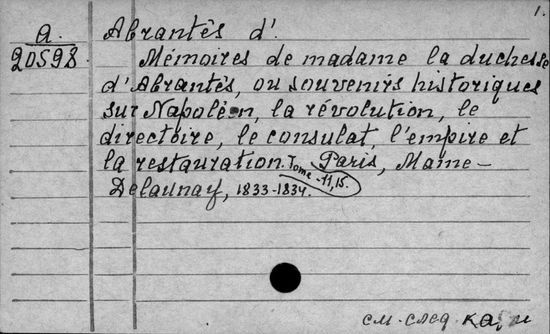 1.
a. Abrantès d'.
20598 Mémoires de madame la duchesse
d'Abrantés, ou souvenirs historiques
sur Napoléon, la révolution, le
directoire, le consulat, l'empire et
la restauration. Tome 11,15. Paris, Mame-
Delaunay, 1833-1834.
см. след.